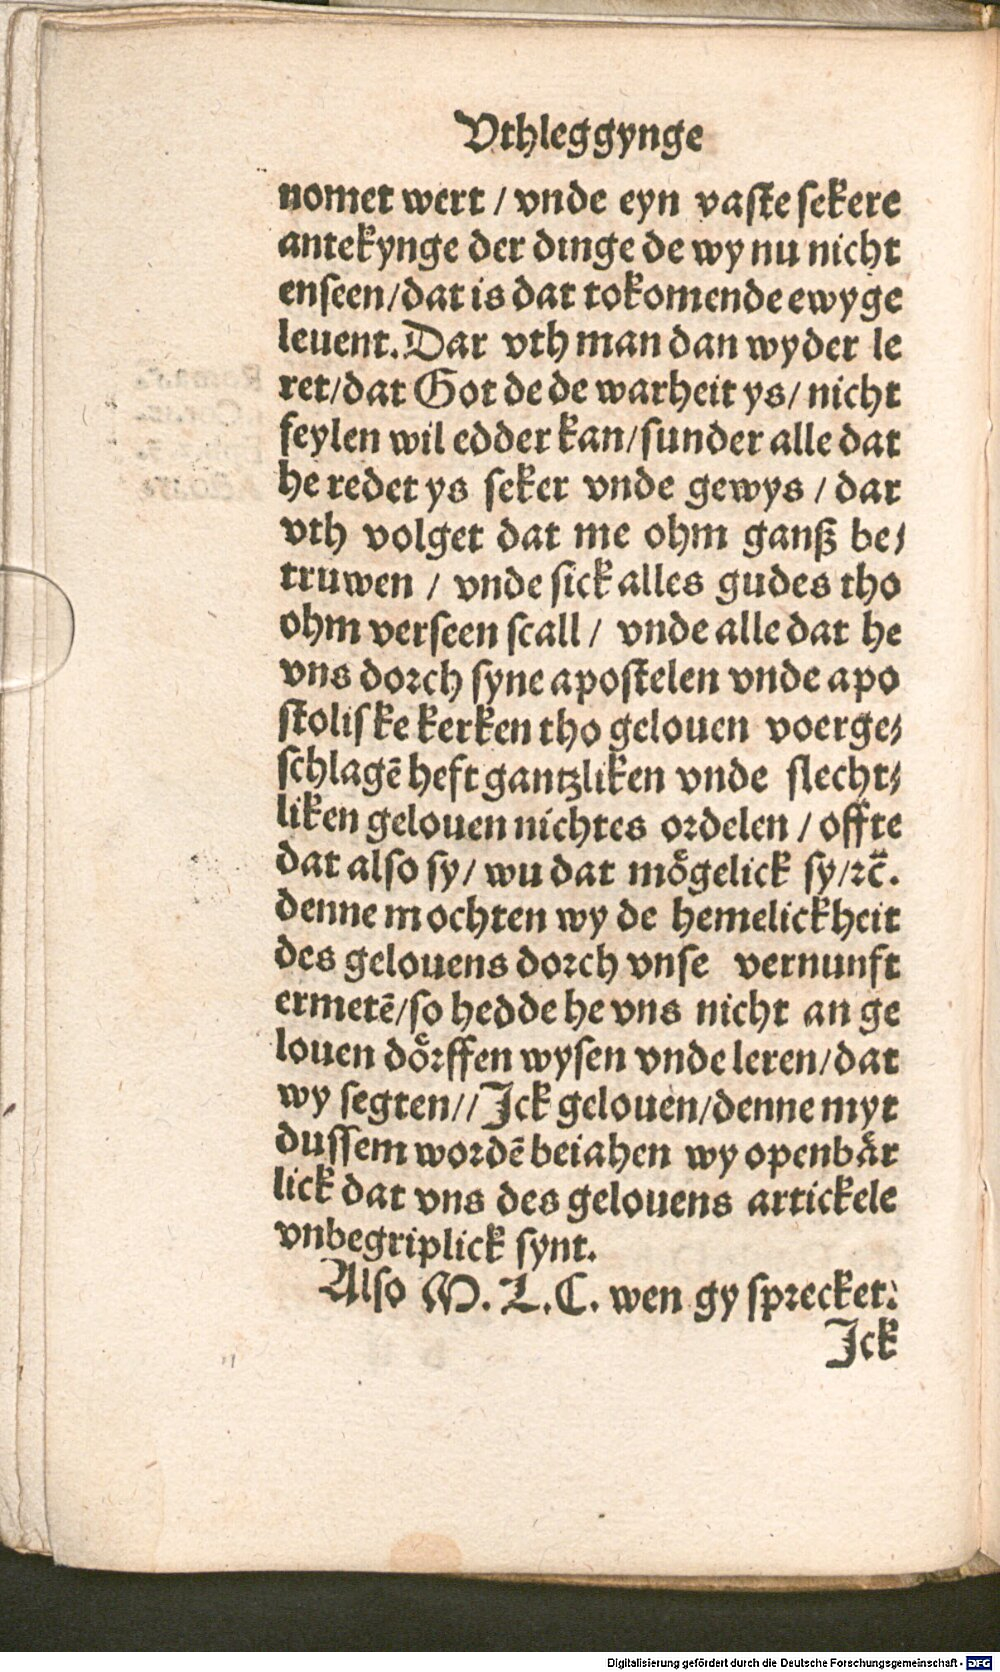 Vthleggynge
nomet wert / vnde eyn vaste sekere
antekynge der dinge de wy nu nicht
enseen/dat is dat tokomende ewyge
leuent. Dar vth man dan wyder le
ret/dat Got de de warheit ys/ nicht
feylen wil edder kan/sunder alle dat
he redet ys seker vnde gewys / dar
vth volget dat me ohm ganß be⸗
truwen / vnde sick alles gudes tho
ohm verseen scall / vnde alle dat he
vns dorch syne apostelen vnde apo
stoliske kerken tho gelouen voerge⸗
schlagē heft gantzliken vnde slecht⸗
liken gelouen nichtes ordelen / offte
dat also sy/ wu dat mögelick sy/ꝛc̄.
denne mochten wy de hemelickheit
des gelouens dorch vnse vernunft
ermetē/so hedde he vns nicht an ge
louen dörffen wysen vnde leren/dat
wy segten// Jck gelouen/denne myt
dussem wordē beiahen wy openbår
lick dat vns des gelouens artickele
vnbegriplick synt.
Also M. L. C. wen gy sprecket:
Jck
Digitalisierung gefördert durch die Deutsche Forschungsgemeinschaft - DFG